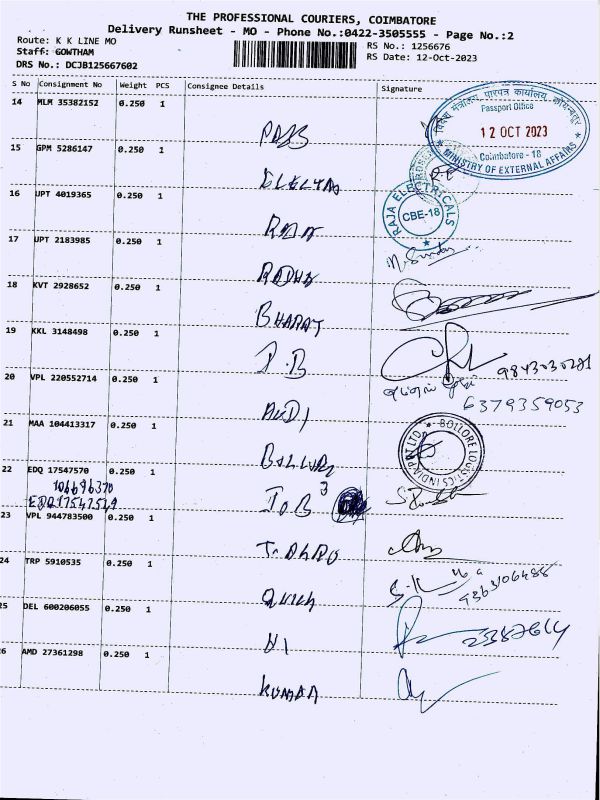 THE PROFESSIONAL COURIERS, COIMBATORE
Delivery Runsheet - MO - Phone No.:0422-3505555 - Page No.:2
Route: K K LINE MO
RS No.: 1256676
Staff: GOWTHAM
RS Date: 12-Oct-2023
DRS No.: DCJB125667602
S No Consignment No Weight PCS Consignee Details Signature
14 MLM 35382152 0.250 1
Passport Office
12 OCT 2023
Coimbatore - 18
MINISTRY OF EXTERNAL AFFAIRS
15 GPM 5286147 0.250 1
16 UPT 4019365 0.250 1
RAJA ELECTRICALS
CBE-18
17 UPT 2183985 0.250 1
RADHA
18 KVT 2928652 0.250 1
BHARAT
19 KKL 3148498 0.250 1
9843030281
20 VPL 220552714 0.250 1
6379359053
AUDI
21 MAA 104413317 0.250 1
BOLLORE LOGISTICS INDIA PVT LTD
22 EDQ 17547570 0.250 1
106696370
EDQ17547569
IOB 3
23 VPL 944783500 0.250 1
24 TRP 5910535 0.250 1
9363106488
25 DEL 600206055 0.250 1
26 AMD 27361298 0.250 1
KUMAR